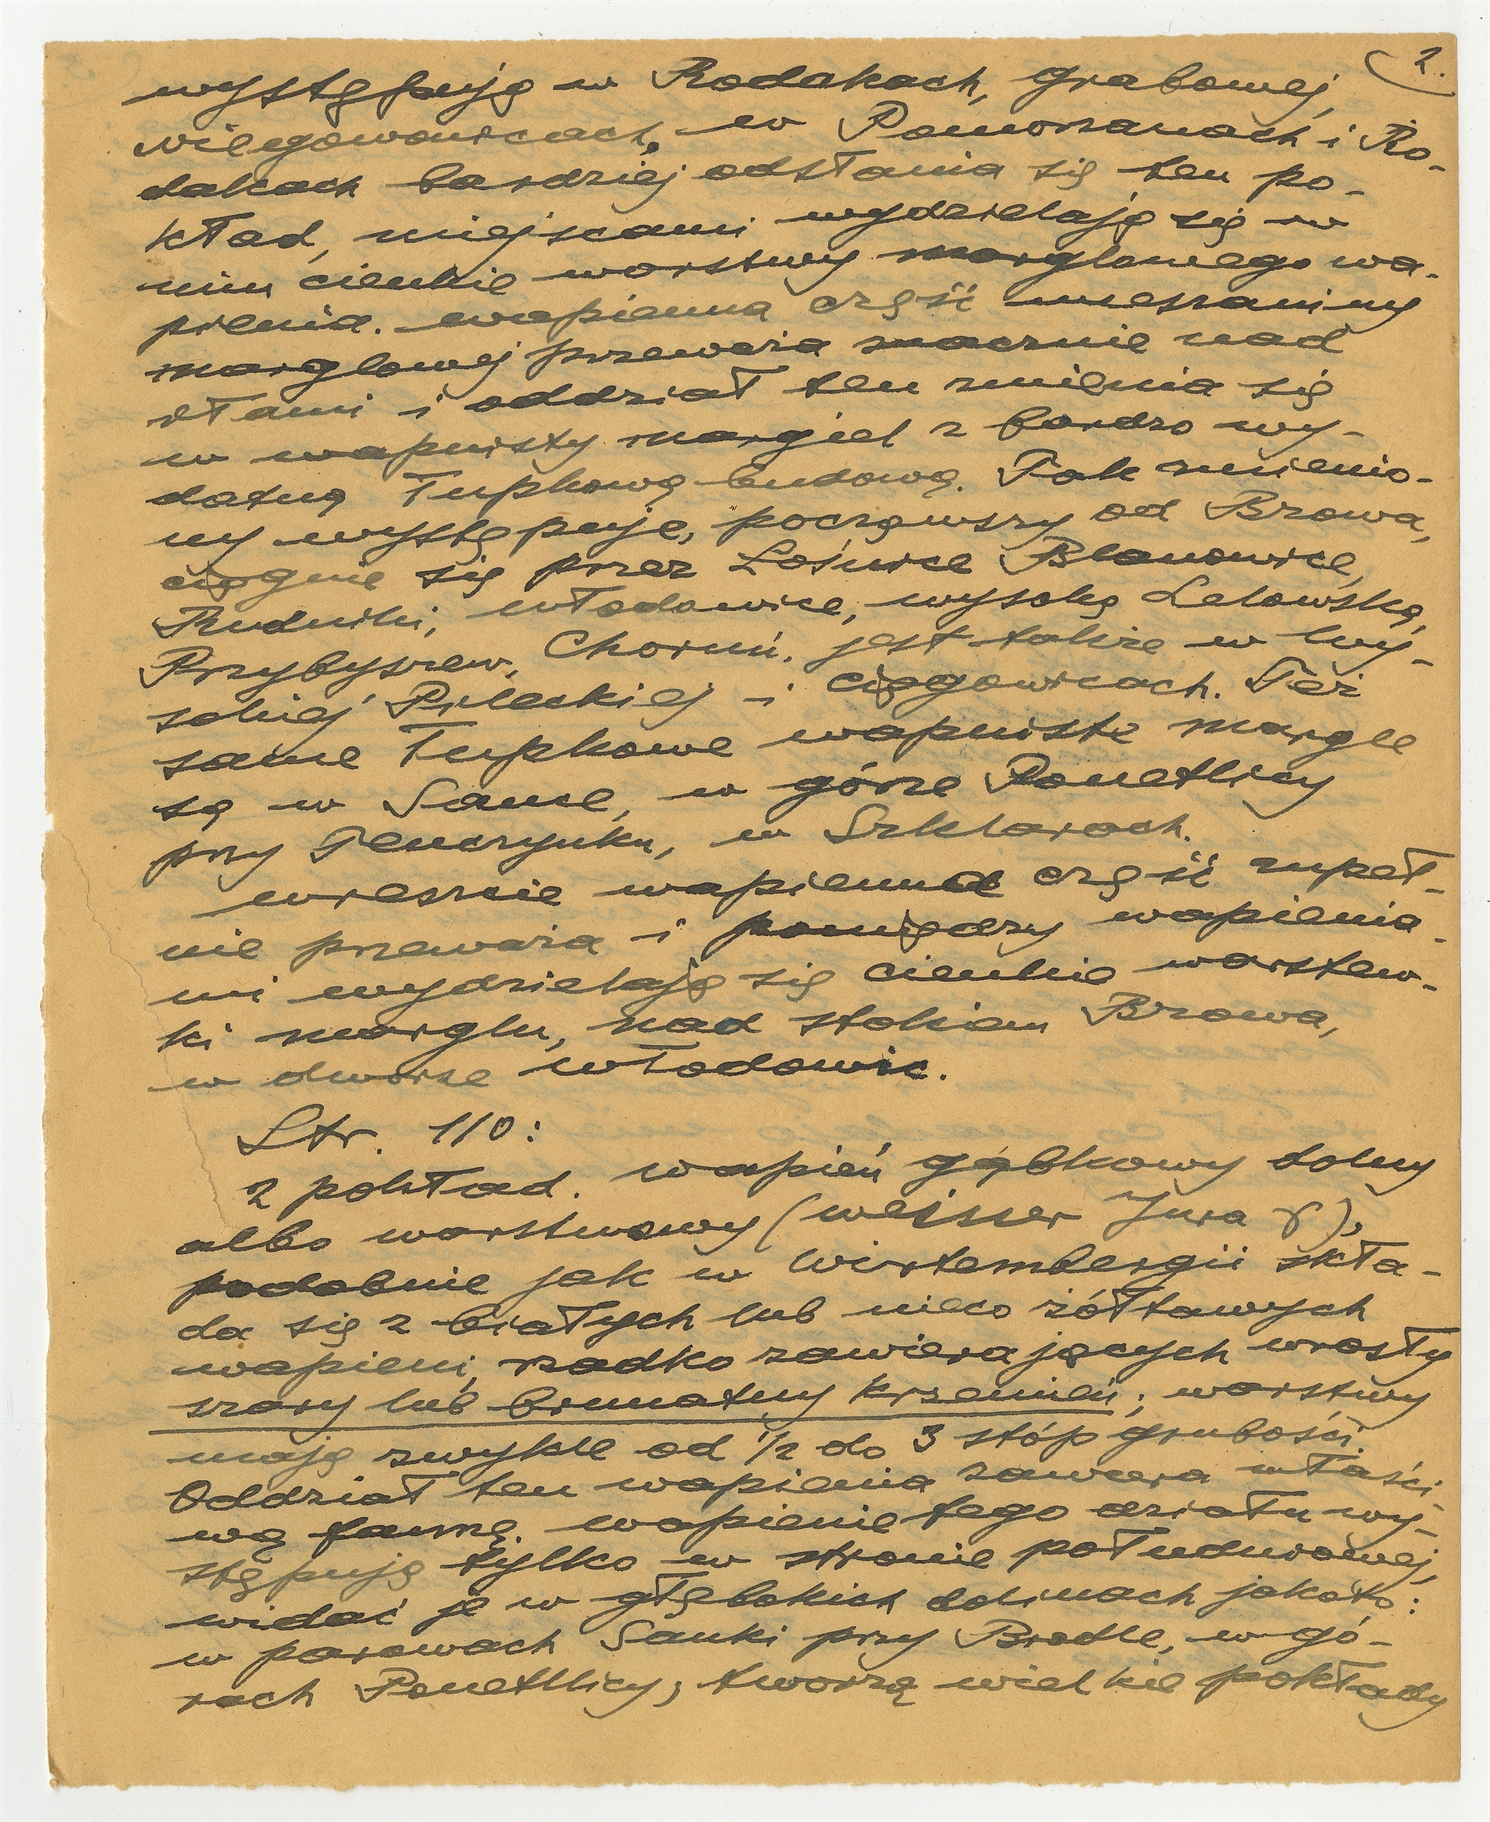 2.
występują w Rodakach, Grabowej,
Niegowonicach. w Pomorzanach i Ro-
dakach bardziej odsłania się ten po-
kład, miejscami wydzielają się w
nim cienkie warstwy marglowego wa-
pienia. wapienna część mieszaniny
marglowej przeważa znacznie nad
iłami i oddział ten zmienia się
w wapnisty margiel z bardzo wy-
datną łupkową budową. Tak zmienio-
ny występuje, począwszy od Browa,
ciągnie się przez Łośnice Blanowice,
Rudniki, Włodowice, wysoką Lelowską,
Przybyszew, Choruń. jest także w Wy-
sokiej Pileckiej i Ciągowicach. Też
same łupkowe wapniste margle
są w Sance, w górze Ponetlicy
przy Tenczynku, w Szklarach.
wreszcie wapienna część zupeł-
nie przeważa i pomiędzy wapienia-
mi wydzielają się cienkie warstew-
ki marglu, nad stokiem Browa,
w dworze Włodowic.
Str. 110:
2 pokład. wapień gąbkowy dolny
albo warstwowy (weisser Jura γ),
podobnie jak w Wirtembergii skła-
da się z białych lub nieco żółtawych
wapieni, rzadko zawierających wrosły
szary lub brunatny krzemień; warstwy
mają zwykle od 1/2 do 3 stóp grubości.
Oddział ten wapienia zawiera właści-
wą faunę. wapienie tego działu wy-
stępują tylko w stronie południowej,
widać je w głębokich dolinach jakoto:
w parowach Sanki przy Brodle, w gó-
rach Ponetlicy; tworzą wielkie pokłady